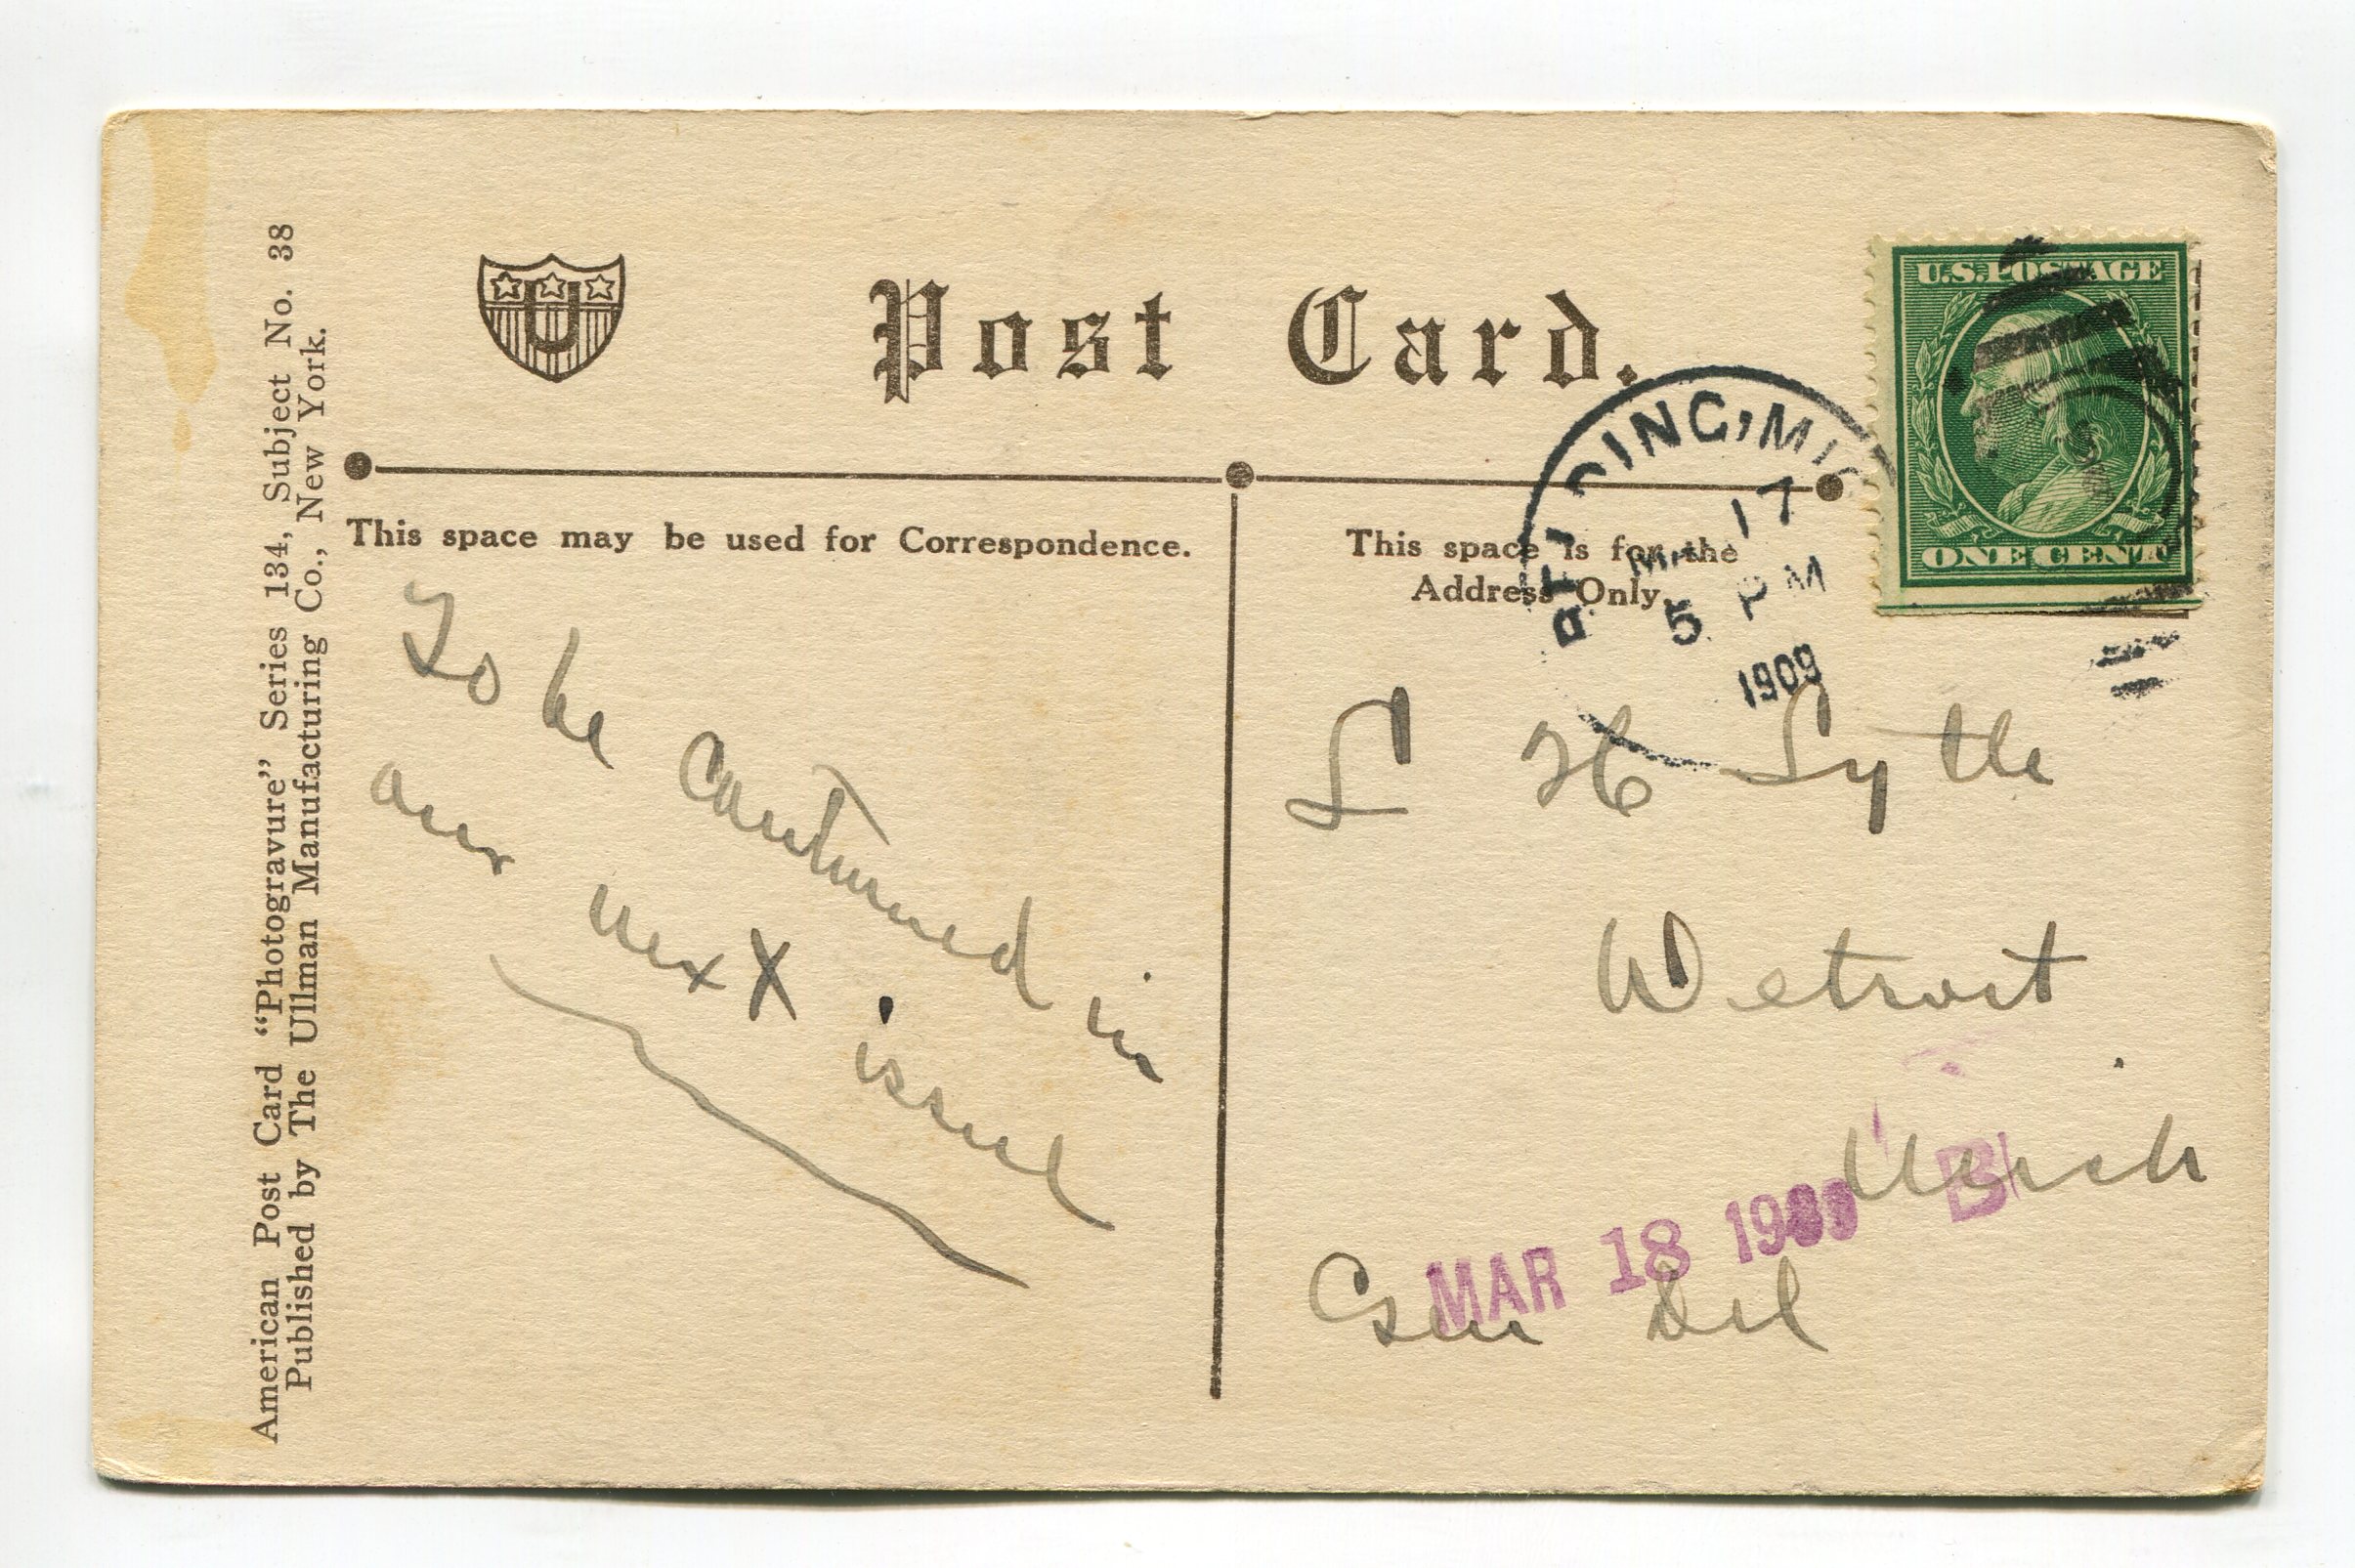 American Post Card "Photogravure" Series 134, Subject No. 38
Published by The Ullman Manufacturing Co., New York.
U
Post Card.
U.S. POSTAGE
ONE CENT
DING, MIC
17
5 PM
1909
This space may be used for Correspondence.
This space is for the
Address Only.
To be continued in
our next issue
L H Lytle
Detroit
Mich
Gen Del
MAR 18 1909 B